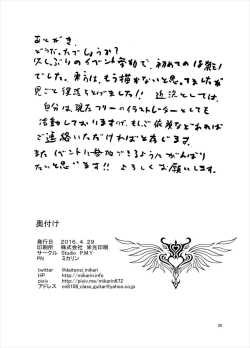 あとがき。
どうだったでしょうか?
久しぶりのイベント参加で、初めての
でした。もう描かないと思ってましたが
見ごと復活をとげました!! 近況としては、
自分は、現在フリーのイラストレーターとしても
活動しておりますが、もしご依頼などあれば
ご連絡いただければと存じます。
またイベントに参加できるようにがんばり
たいと思います!! よろしくお願いします。
奥付け
発行日 2016.4.29
印刷所 株式会社 栄光印刷
サークル Studio P.M.Y
PN ミカリン
twitter
HP http://mikarin.info
pixiv http://pixiv.me/mikarin672
アドレス